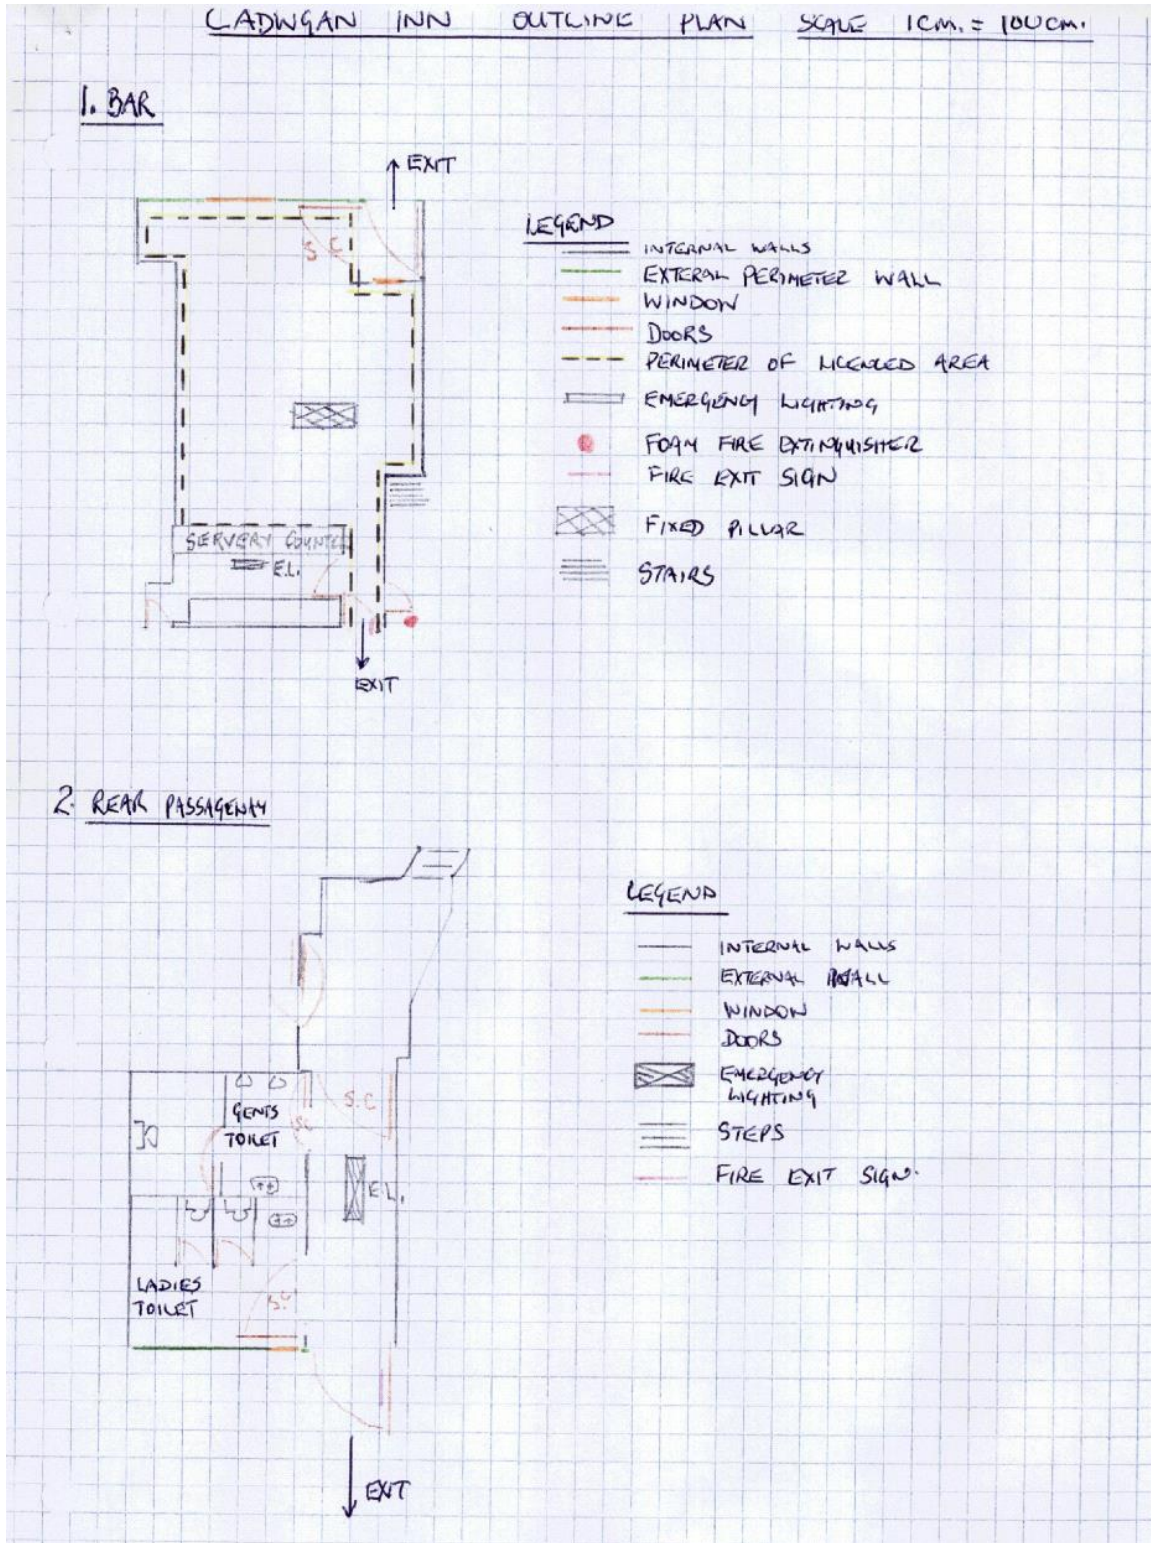 CADWGAN INN OUTLINE PLAN SCALE 1CM. = 100CM.
1. BAR
EXIT
S C
SERVERY COUNTER
E.L.
EXIT
LEGEND
INTERNAL WALLS
EXTERAL PERIMETER WALL
WINDOW
DOORS
PERIMETER OF LICENCED AREA
EMERGENCY LIGHTING
FOAM FIRE EXTINGUISHER
FIRE EXIT SIGN
FIXED PILLAR
STAIRS
2. REAR PASSAGEWAY
GENTS
TOILET
S.C
SC
E.L.
LADIES
TOILET
S.C
EXIT
LEGEND
INTERNAL WALLS
EXTERNAL WALL
WINDOW
DOORS
EMERGENCY
LIGHTING
STEPS
FIRE EXIT SIGN.